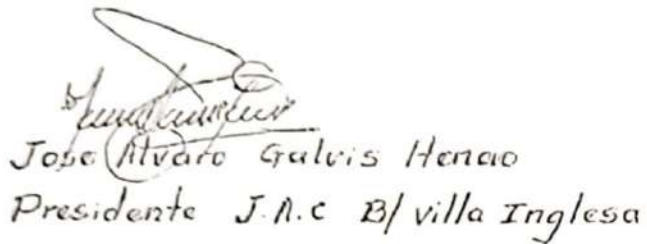 Jose Alvaro Galvis Henao
Presidente J.A.C B/ villa Inglesa